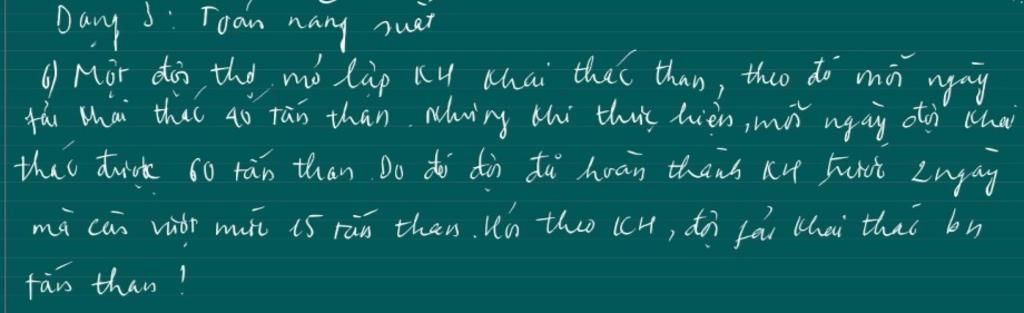 Dạng 3: Toán năng suất
6) Một đội thợ mỏ lập KH khai thác than, theo đó mỗi ngày
fải khai thác 40 tấn than. Nhưng khi thực hiện, mỗi ngày đội khai
thác được 60 tấn than. Do đó đội đã hoàn thành KH trước 2 ngày
mà còn vượt mức 15 tấn than. Hỏi theo KH, đội fải khai thác bn
tấn than!